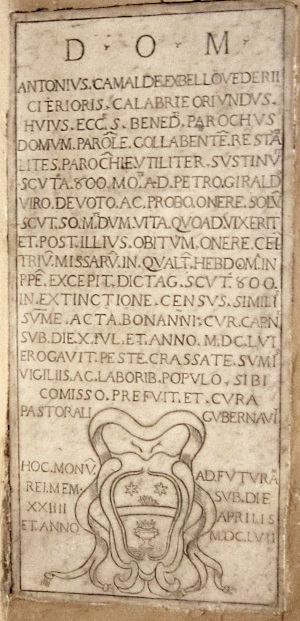 D · O · M ·
ANTONIVS · CAMALDE · EX BELLOVEDERII
CITERIORIS · CALABRIE ORIVNDVS ·
HVIVS · ECC · S · BENED · PAROCHVS
DOMVM · PAROLE · COLLABENTE · RESTA
LITES · PAROCHIE · VTILITER · SVSTINV
SCVTA · 800 · MO · A · D · PETRO · GIRALD
VIRO · DEVOTO · AC · PROBO · ONERE · SOLV
SCVT · SO · M · DVM · VITA · QVOADVIXERIT
ET · POST · ILLIVS · OBITVM · ONERE · CEI
TRIVM · MISSARV · IN · QVALT · HEBDOM · IN
PPE · EXCEPIT · DICTAG · SCVT · 800 ·
IN · EXTINCTIONE · CENSVS · SIMILI
SVME · ACTA · BONANNI · CVR · CAPN
SVB · DIE · X · IVL · ET · ANNO · M · DC · LVI
EROGAVIT · PESTE · CRASSATE · SVMI
VIGILIIS · AC · LABORIB · POPVLO · SIBI
COMISSO · PREFVIT · ET · CVRA
PASTORALI GVBERNAVI
HOC · MONV · AD · FVTVRA
REI · MEM · SVB · DIE
XXIIII APRILIS
ET · ANNO M · DC · LVII